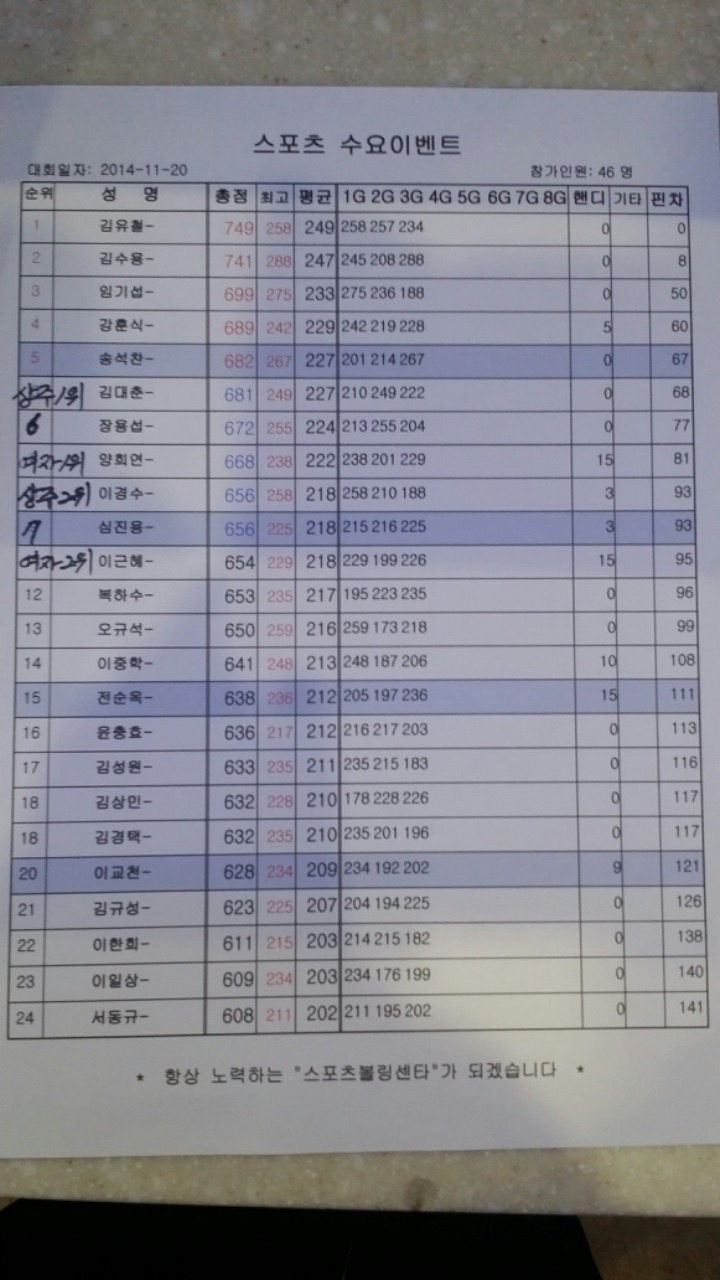 스포츠 수요이벤트
대회일자: 2014-11-20 참가인원: 46 명
순위 성 명 총점 최고 평균 1G 2G 3G 4G 5G 6G 7G 8G 핸디 기타 핀차
1 김유철- 749 258 249 258 257 234 0 0
2 김수용- 741 288 247 245 208 288 0 8
3 임기섭- 699 275 233 275 236 188 0 50
4 강훈식- 689 242 229 242 219 228 5 60
5 송석찬- 682 267 227 201 214 267 0 67
상주1위 김대춘- 681 249 227 210 249 222 0 68
6 장용섭- 672 255 224 213 255 204 0 77
여자1위 양희연- 668 238 222 238 201 229 15 81
상주2위 이경수- 656 258 218 258 210 188 3 93
7 심진용- 656 225 218 215 216 225 3 93
여자2위 이근혜- 654 229 218 229 199 226 15 95
12 복하수- 653 235 217 195 223 235 0 96
13 오규석- 650 259 216 259 173 218 0 99
14 이중학- 641 248 213 248 187 206 10 108
15 전순옥- 638 236 212 205 197 236 15 111
16 윤충효- 636 217 212 216 217 203 0 113
17 김성원- 633 235 211 235 215 183 0 116
18 김상민- 632 228 210 178 228 226 0 117
18 김경택- 632 235 210 235 201 196 0 117
20 이교천- 628 234 209 234 192 202 9 121
21 김규성- 623 225 207 204 194 225 0 126
22 이한희- 611 215 203 214 215 182 0 138
23 이일상- 609 234 203 234 176 199 0 140
24 서동규- 608 211 202 211 195 202 0 141
* 항상 노력하는 "스포츠볼링센타"가 되겠습니다 *